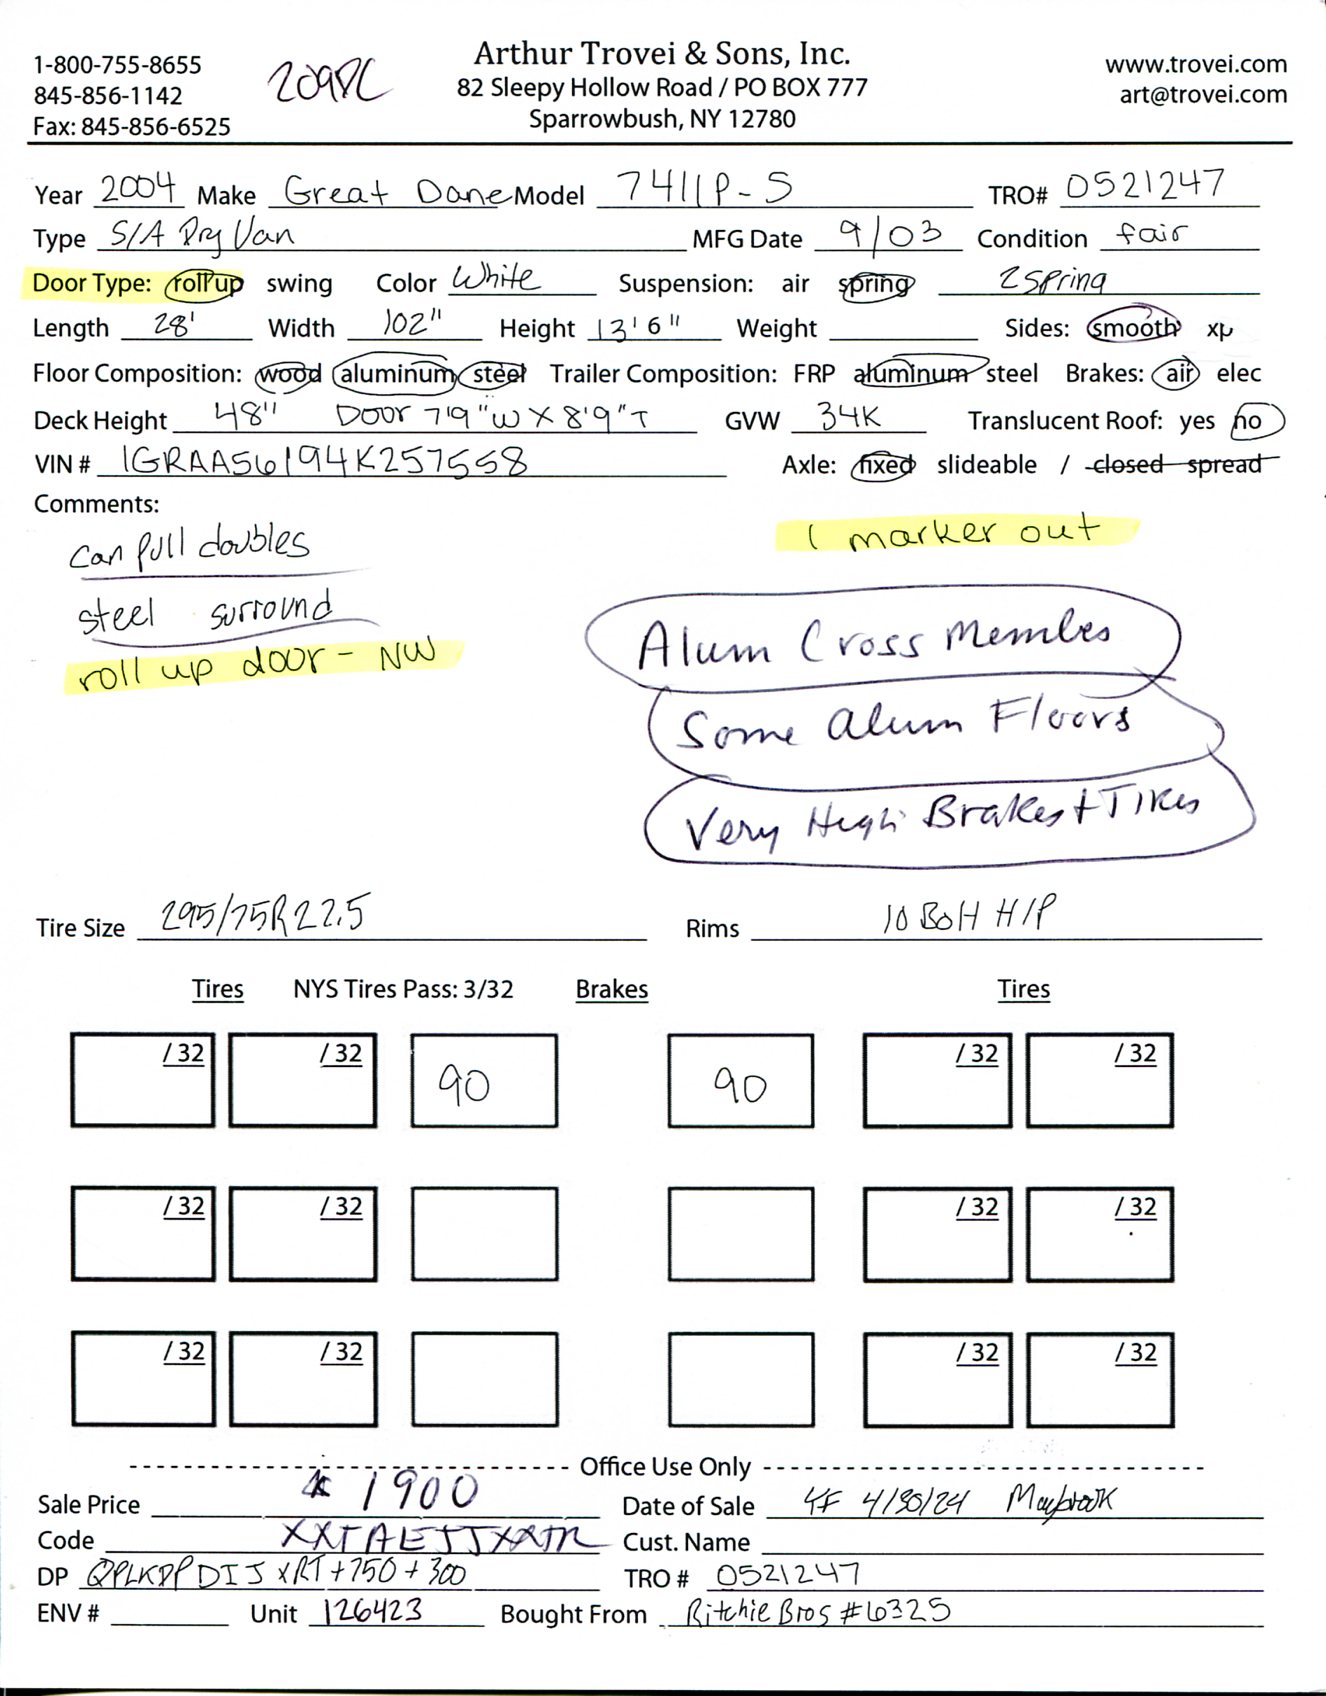 Arthur Trovei & Sons, Inc.
1-800-755-8655 209PC 82 Sleepy Hollow Road / PO BOX 777 www.trovei.com
845-856-1142 art@trovei.com
Fax: 845-856-6525 Sparrowbush, NY 12780
Year 2004 Make Great Dane Model 7411P-S TRO# 0521247
Type S/A Dry Van MFG Date 9/03 Condition fair
Door Type: roll up swing Color White Suspension: air spring 2 spring
Length 28' Width 102" Height 13'6" Weight Sides: smooth xp
Floor Composition: wood aluminum steel Trailer Composition: FRP aluminum steel Brakes: air elec
Deck Height 48" Door 7'9"W X 8'9"T GVW 34K Translucent Roof: yes no
VIN # 1GRAA56194K257558 Axle: fixed slideable / closed spread
Comments:
can pull doubles
1 marker out
steel surround
roll up door - NW
Alum Cross Membes
Some Alum Floors
Very High Brakes + Tires
Tire Size 295/75R22.5 Rims 10 BOH H/P
Tires NYS Tires Pass: 3/32 Brakes Tires
/32 /32 90 90 /32 /32
/32 /32 /32 /32
/32 /32 /32 /32
Office Use Only
Sale Price 1900 Date of Sale 4/30/24 Maybrook
Code Cust. Name
DP QPLKDP DIJ XRT + 750 + 300 TRO # 0521247
ENV # Unit 126423 Bought From Ritchie Bros #6325